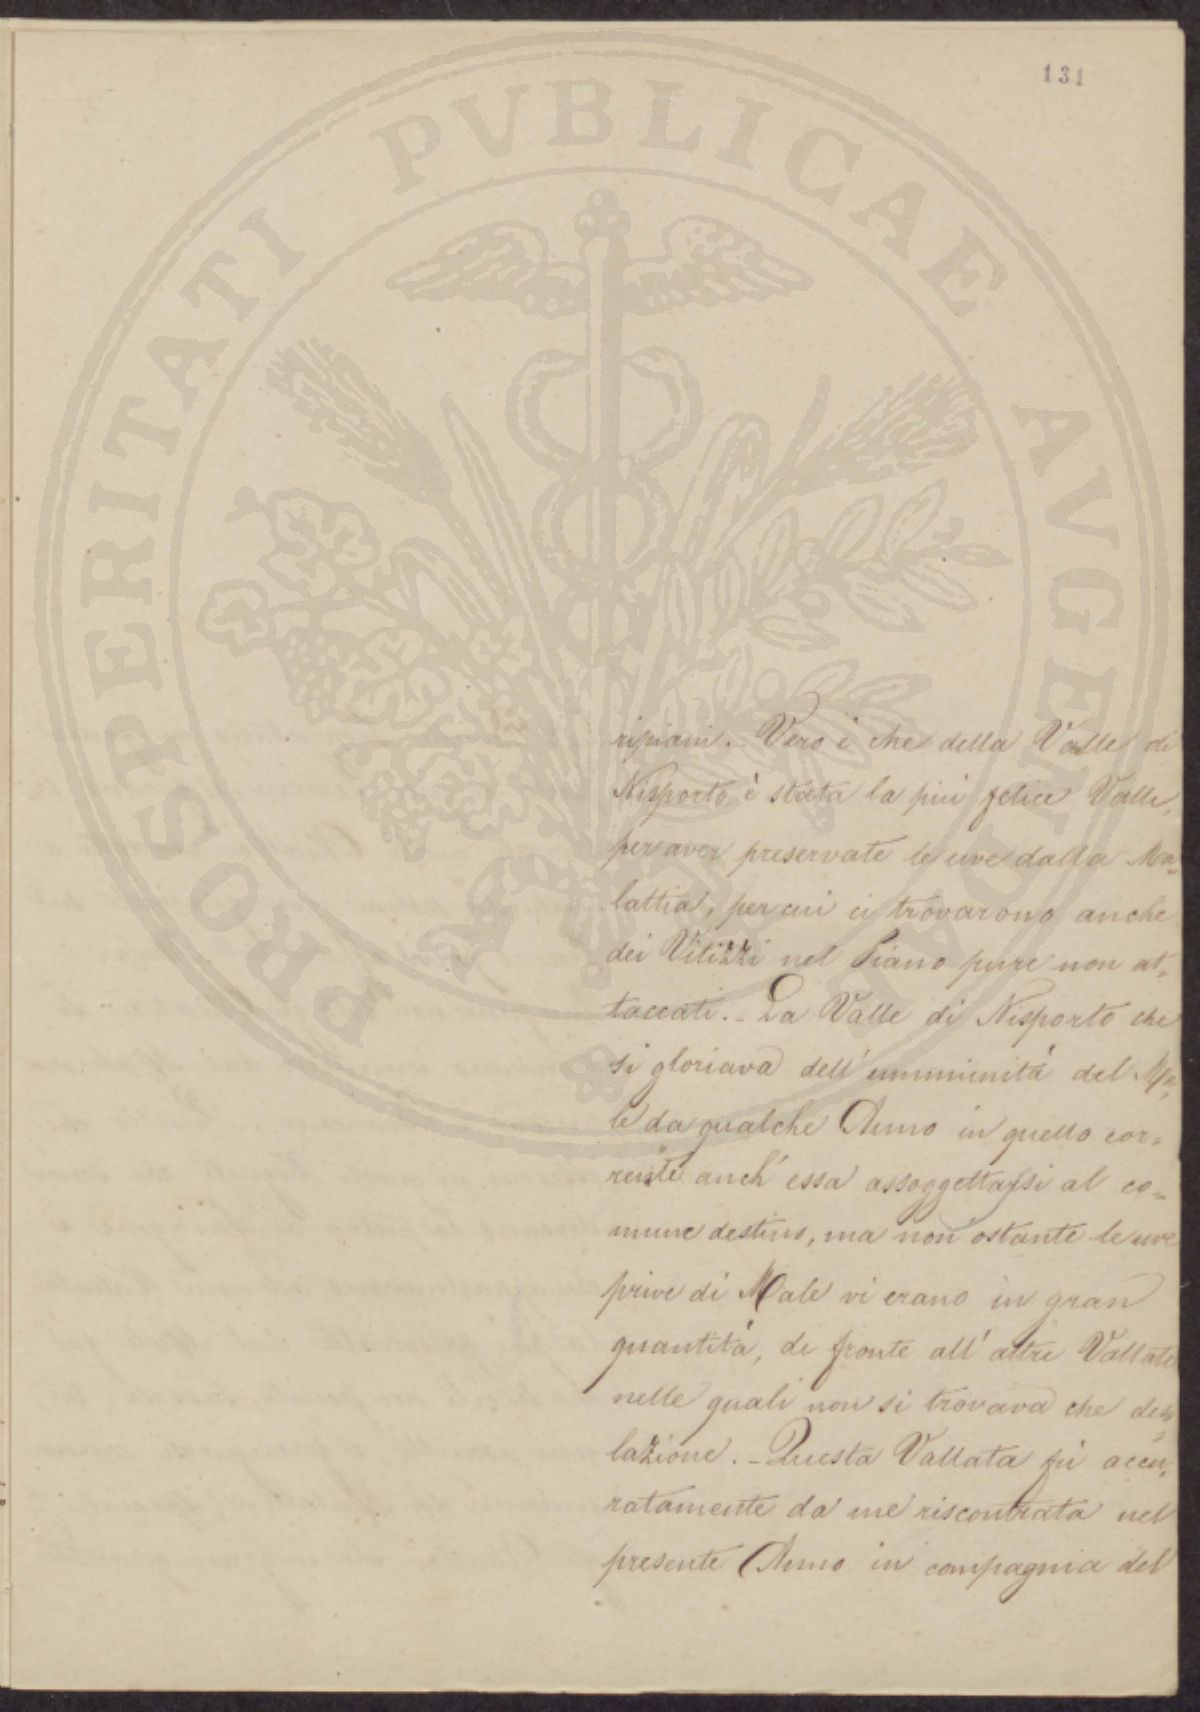 131
PROSPERITATI PVBLICAE AVGENDAE
ripiani. Vero è che della Valle di
Nisporto è stata la più felice Valle,
per aver preservate le uve dalla Ma=
lattia, per cui ci trovarono anche
dei Vitizzi nel Piano pure non at=
taccati. - La Valle di Nisporto che
si gloriava dell' immunità del Ma=
le da qualche Anno in quello cor=
rente anch' essa assoggettassi al co=
mune destino, ma non ostante le uve
prive di Male vi erano in gran
quantità, di fronte all' altre Vallate
nelle quali non si trovava che deso=
lazione. - Questa Vallata fù accu=
ratamente da me riscontrata nel
presente Anno in compagnia del